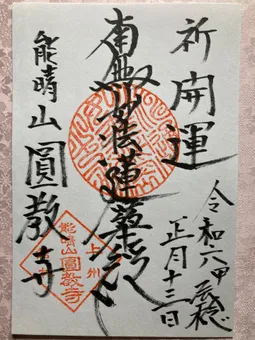 祈開運
令和六甲辰穐
正月十三日
南無妙法蓮華経
能晴山圓教寺
上州
能晴山
圓教寺